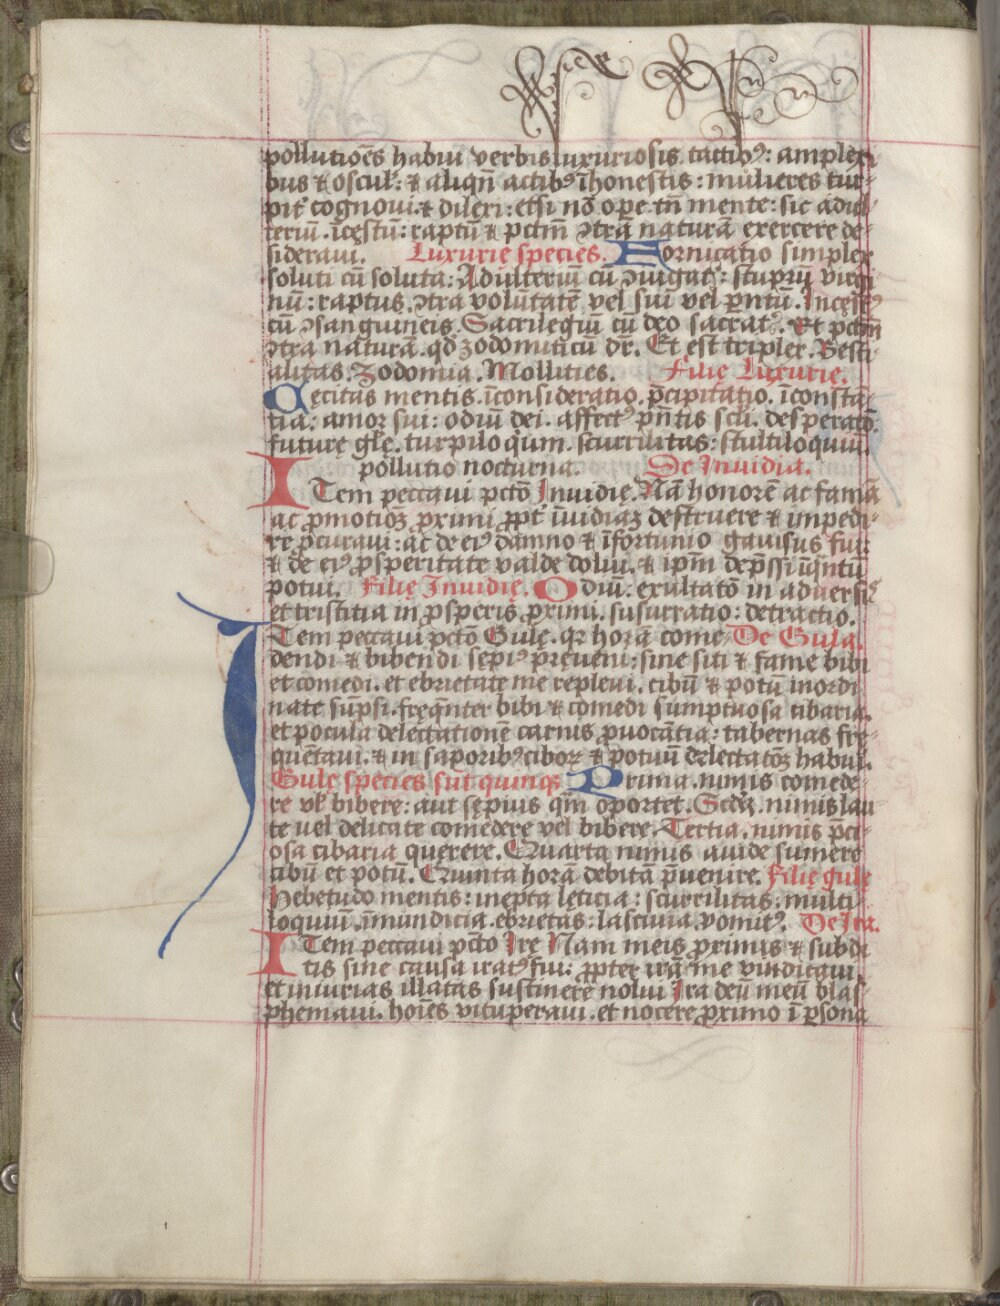 pollutiões habui verbis luxuriosis tactibꝰ: amplexi
bus ⁊ oscul': ⁊ aliqñ actibꝰ ĩhonestis: mulieres tur-
pit' cognoui. ⁊ dilexi: etsi nõ oꝑe tñ mente: sic adul
teriũ. ĩcęstũ: raptũ ⁊ pctm ꝯtra naturã exercere de-
sideraui. Luxurie species. Fornicatio simplex
soluti cũ soluta: Adulteriũ cũ ꝯiugat': stuprũ virgi
nũ: raptus ꝯtra volũtatẽ vel sui vel pntũ. Incęstꝰ
cũ ꝯsanguineis. Sacrilegiũ cũ deo sacratꝭ. Et pctm
ꝯtra naturã. qđ zodomiticũ dr̃. Et est triplex. Besti-
alitas. Zodomia. Mollities. Filię Luxurię.
Cecitas mentis. ĩconsideratio. p̃cipitatio. ĩconstã
tia: amor sui: odiũ dei. affectꝰ pñtis scli. desperatõ.
future glę. turpiloqum. scurrilitas: stultiloquiũ.
pollutio nocturna. De Inuidia.
ITem peccaui pctõ Inuidie. Nã honorẽ ac famã
ac ꝓmotiõꝫ ꝓximi ꝓpt' ĩuidiaꝫ destruere ⁊ impedi-
re ꝓcuraui: ac de eiꝰ damno ⁊ ĩfortunio gauisus fui:
⁊ de eiꝰ ꝓsperitate valde dolui. ⁊ ipm dep̃ssi ĩqntũ
potui. Filię Inuidię. Odiũ. exultatõ in aduersis
et tristitia in ꝓsperis ꝓximi. susurratio: detractio.
ITem peccaui pctõ Gulę. qꝛ hora come- De Gula.
dendi ⁊ bibendi sepiꝰ preueni: sine siti ⁊ fame bibi
et comedi. et ebrietate me repleui. cibũ ⁊ potũ inordi
nate sũpsi. freqnter bibi ⁊ comedi sumptuosa cibaria.
et pocula delectationẽ carnis ꝓuocãtia: tabernas fre
quẽtaui. ⁊ in saporibꝰ ciboꝝ ⁊ potuũ delectatõꝫ habui.
Gulę species sũt quinqꝫ Prima. nimis comede-
re vl' bibere: aut sępius qm oportet. Scđa. nimis lau
te uel delicate comedere vel bibere. Tertia. nimis p̃ci-
osa cibaria querere. Quarta nimis auide sumere
cibũ et potũ. Quinta horã debitã p̃uenire. Filię gulę
Hebetudo mentis: inepta leticia: scurrilitas: multi-
loquiũ. ĩmundicia. ebrietas: lasciuia. vomitꝰ. De Ira.
ITem peccaui pctõ Ire Nam meis ꝓximis ⁊ subdi
tis sine causa iratꝰ fui. ꝓpter irã me vindicaui.
et iniurias illatas sustinere nolui Ira deũ meũ blas-
phemaui. hoĩes vituperaui. et nocere ꝓximo ĩ ꝑsona